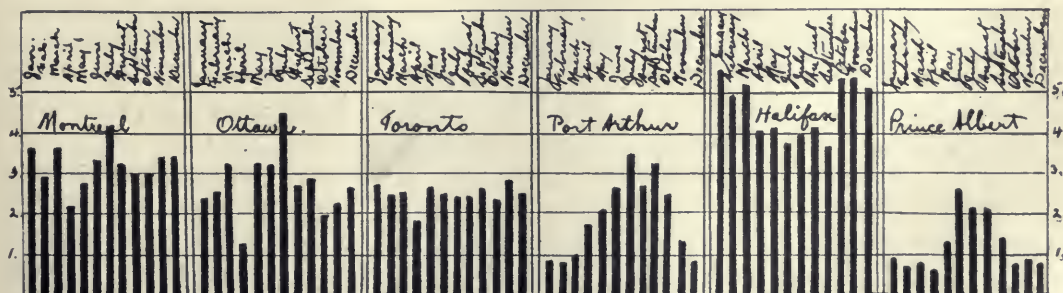 Jan.
Feb.
March
April
May
June
July
August
September
October
November
December
January
February
March
April
May
June
July
October
November
December
January
February
March
April
May
June
July
August
September
October
November
December
January
February
March
April
May
June
July
August
September
October
November
December
January
February
March
April
May
June
July
August
September
October
November
December
January
February
March
April
May
June
July
August
September
October
November
December
5
5
Montreal
Ottawa.
Toronto
Port Arthur
Halifax
Prince Albert
4
4
3
3
2
2
1
1